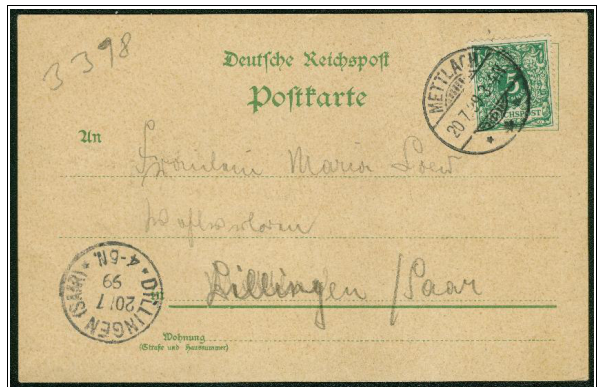 3398
Deutsche Reichspost
Postkarte
METTLACH
20.7.99. 3-4N
5
REICHSPOST
An
Fräulein Maria Loew
Dillingen / Saar
DILLINGEN (SAAR)
20/7
99
4-5N.
Wohnung
(Straße und Hausnummer)